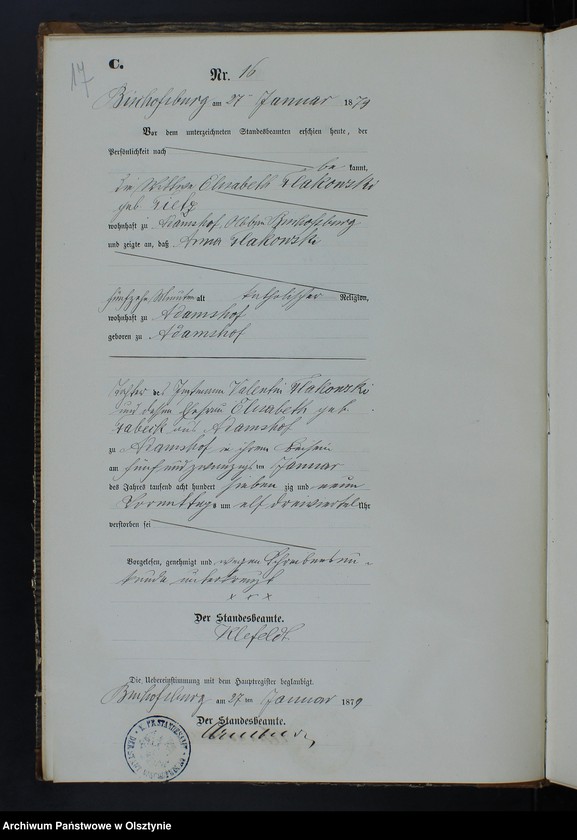 17
C.
Nr. 16
Bischofsburg am 27 Januar 1879
Vor dem unterzeichneten Standesbeamten erschien heute, der
Persönlichkeit nach
be kannt,
die Wittwe Elisabeth
geb.
wohnhaft zu Adamshof Abbau Bischofsburg
und zeigte an, daß Anna
fünfzehn Monate alt katholischer Religion,
wohnhaft zu Adamshof
geboren zu Adamshof
Tochter des Instmann Valentin
und dessen Ehefrau Elisabeth geb.
aus Adamshof
zu Adamshof in ihrem Beisein
am fünf und zwanzigsten Januar
des Jahres tausend acht hundert sieben zig und neun
Vormittags um elf dreiviertel Uhr
verstorben sei
Vorgelesen, genehmigt und wegen Schreibensun-
kunde unterkreuzt
x x x
Der Standesbeamte.
Klefeldt
Die Uebereinstimmung mit dem Hauptregister beglaubigt.
Bischofsburg am 27 ten Januar 1879
Der Standesbeamte.
K. PR. STANDESAMT
Archiwum Państwowe w Olsztynie